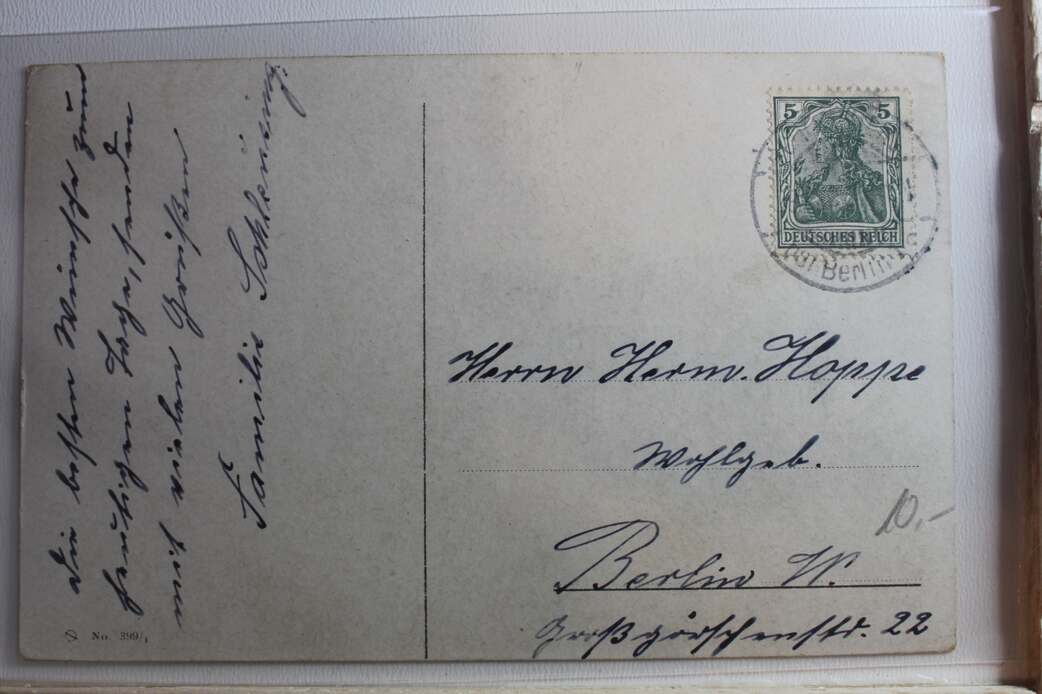 Die besten Wünsche zum
heutigen Tage, senden
mit vielen Grüßen
Familie
No. 399/1
5 5
DEUTSCHES REICH
Berlin
Herrn Herm. Hoppe
Wohlgeb.
Berlin W.
Großgörschenstr. 22
10,-